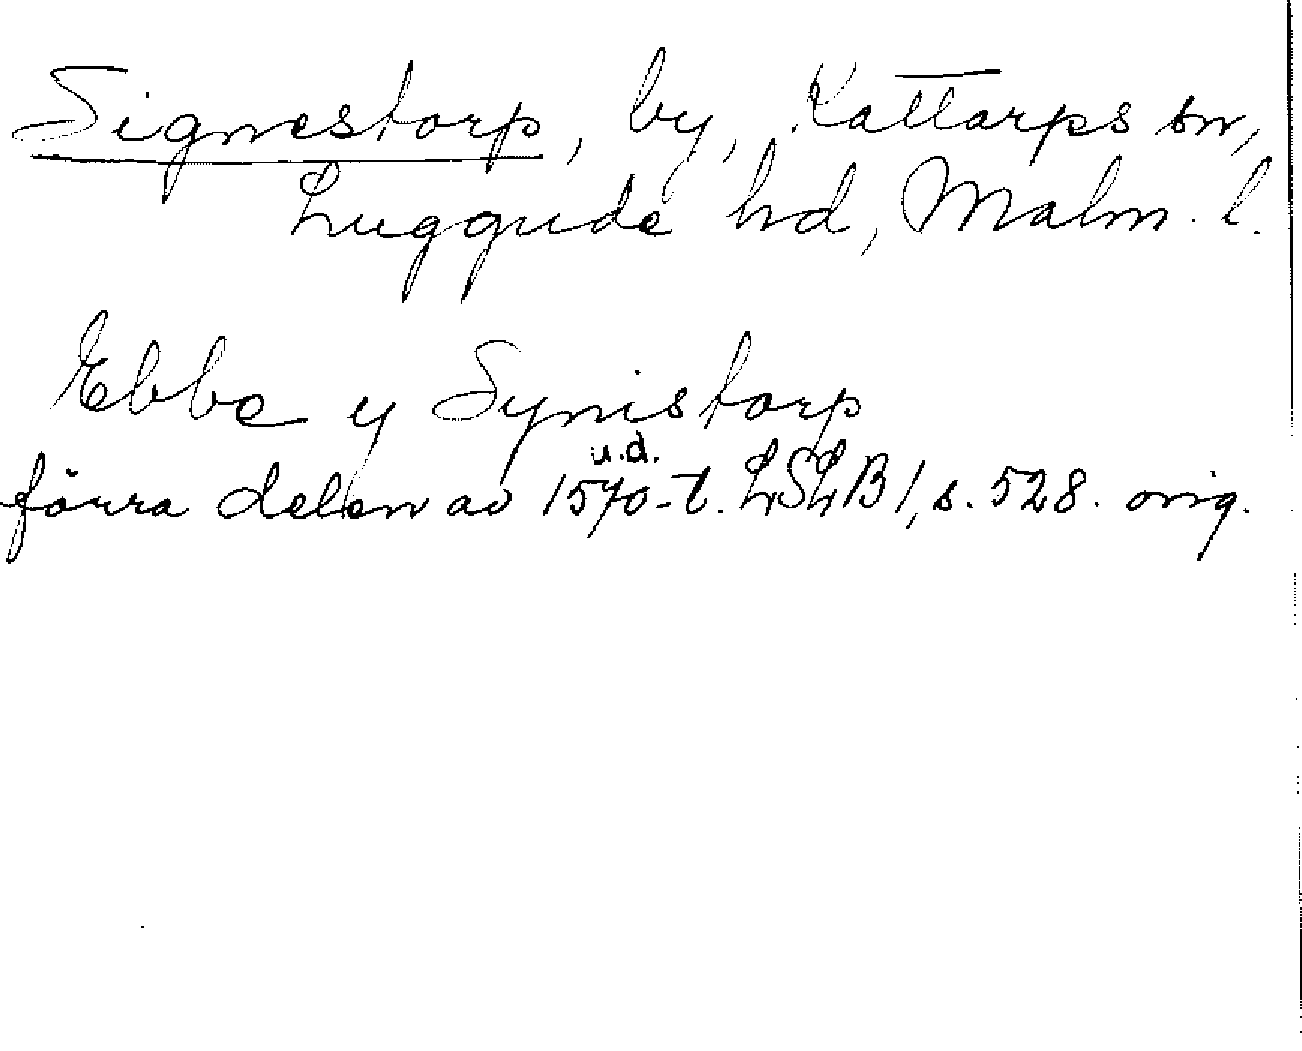 Signestorp, by, Kattarps sn,
Luggude hd, Malm. l.
Ebbe y Synistorp
u.d.
förra delen av 1570-t. LSLB 1, s. 528. orig.